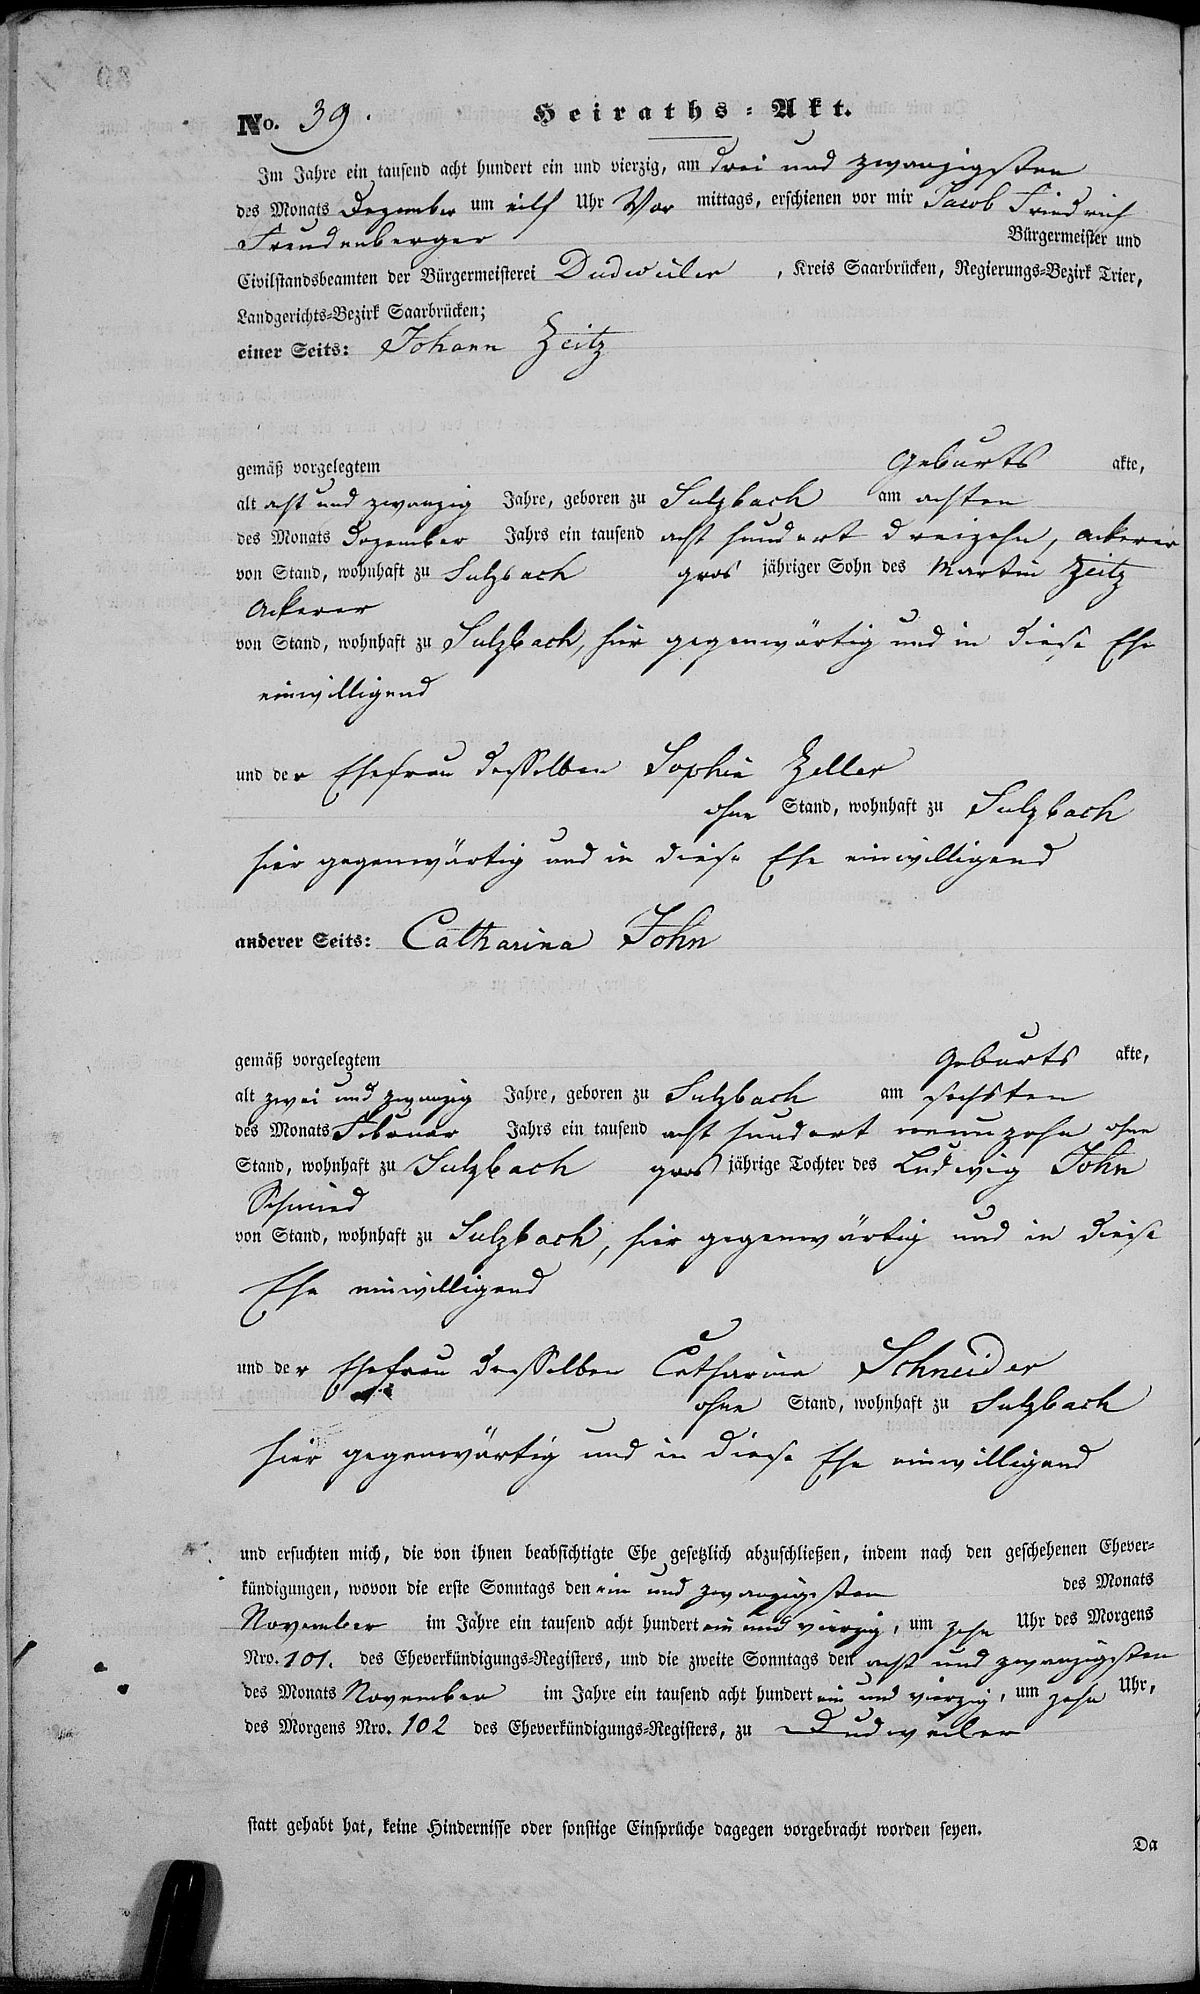 No. 39. Heiraths-Akt.
Im Jahre ein tausend acht hundert ein und vierzig, am drei und zwanzigsten
des Monats Dezember um eilf Uhr Vor mittags, erschienen vor mir Jacob Friedrich
Freudenberger Bürgermeister und
Civilstandsbeamten der Bürgermeisterei Dudweiler, Kreis Saarbrücken, Regierungs-Bezirk Trier,
Landgerichts-Bezirk Saarbrücken;
einer Seits: Johann Zeitz
gemäß vorgelegtem Geburts akte,
alt acht und zwanzig Jahre, geboren zu Sulzbach am achten
des Monats Dezember Jahrs ein tausend acht hundert dreizehn, Ackerer
von Stand, wohnhaft zu Sulzbach gros jähriger Sohn des Martin Zeitz
Ackerer
von Stand, wohnhaft zu Sulzbach, hier gegenwärtig und in diese Ehe
einwilligend
und der Ehefrau desselben Sophia Zeller
ohne Stand, wohnhaft zu Sulzbach
hier gegenwärtig und in diese Ehe einwilligend
anderer Seits: Catharina John
gemäß vorgelegtem Geburts akte,
alt zwei und zwanzig Jahre, geboren zu Sulzbach am sechsten
des Monats Februar Jahrs ein tausend acht hundert neunzehn ohne
Stand, wohnhaft zu Sulzbach gros jährige Tochter des Ludwig John
Schmied
von Stand, wohnhaft zu Sulzbach, hier gegenwärtig und in diese
Ehe einwilligend
und der Ehefrau desselben Catharina Schneider
ohne Stand, wohnhaft zu Sulzbach
hier gegenwärtig und in diese Ehe einwilligend
und ersuchten mich, die von ihnen beabsichtigte Ehe gesetzlich abzuschließen, indem nach den geschehenen Ehever-
kündigungen, wovon die erste Sonntags den ein und zwanzigsten des Monats
November im Jahre ein tausend acht hundert ein und vierzig, um zehn Uhr des Morgens
Nro. 101. des Eheverkündigungs-Registers, und die zweite Sonntags den acht und zwanzigsten
des Monats November im Jahre ein tausend acht hundert ein und vierzig, um zehn Uhr,
des Morgens Nro. 102 des Eheverkündigungs-Registers, zu Dudweiler
statt gehabt hat, keine Hindernisse oder sonstige Einsprüche dagegen vorgebracht worden seyen.
Da